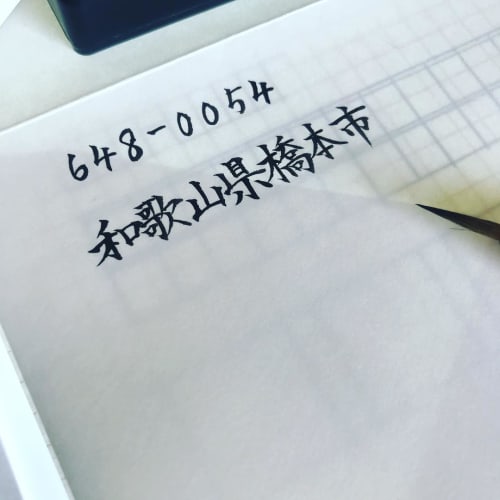 648-0054
和歌山県橋本市